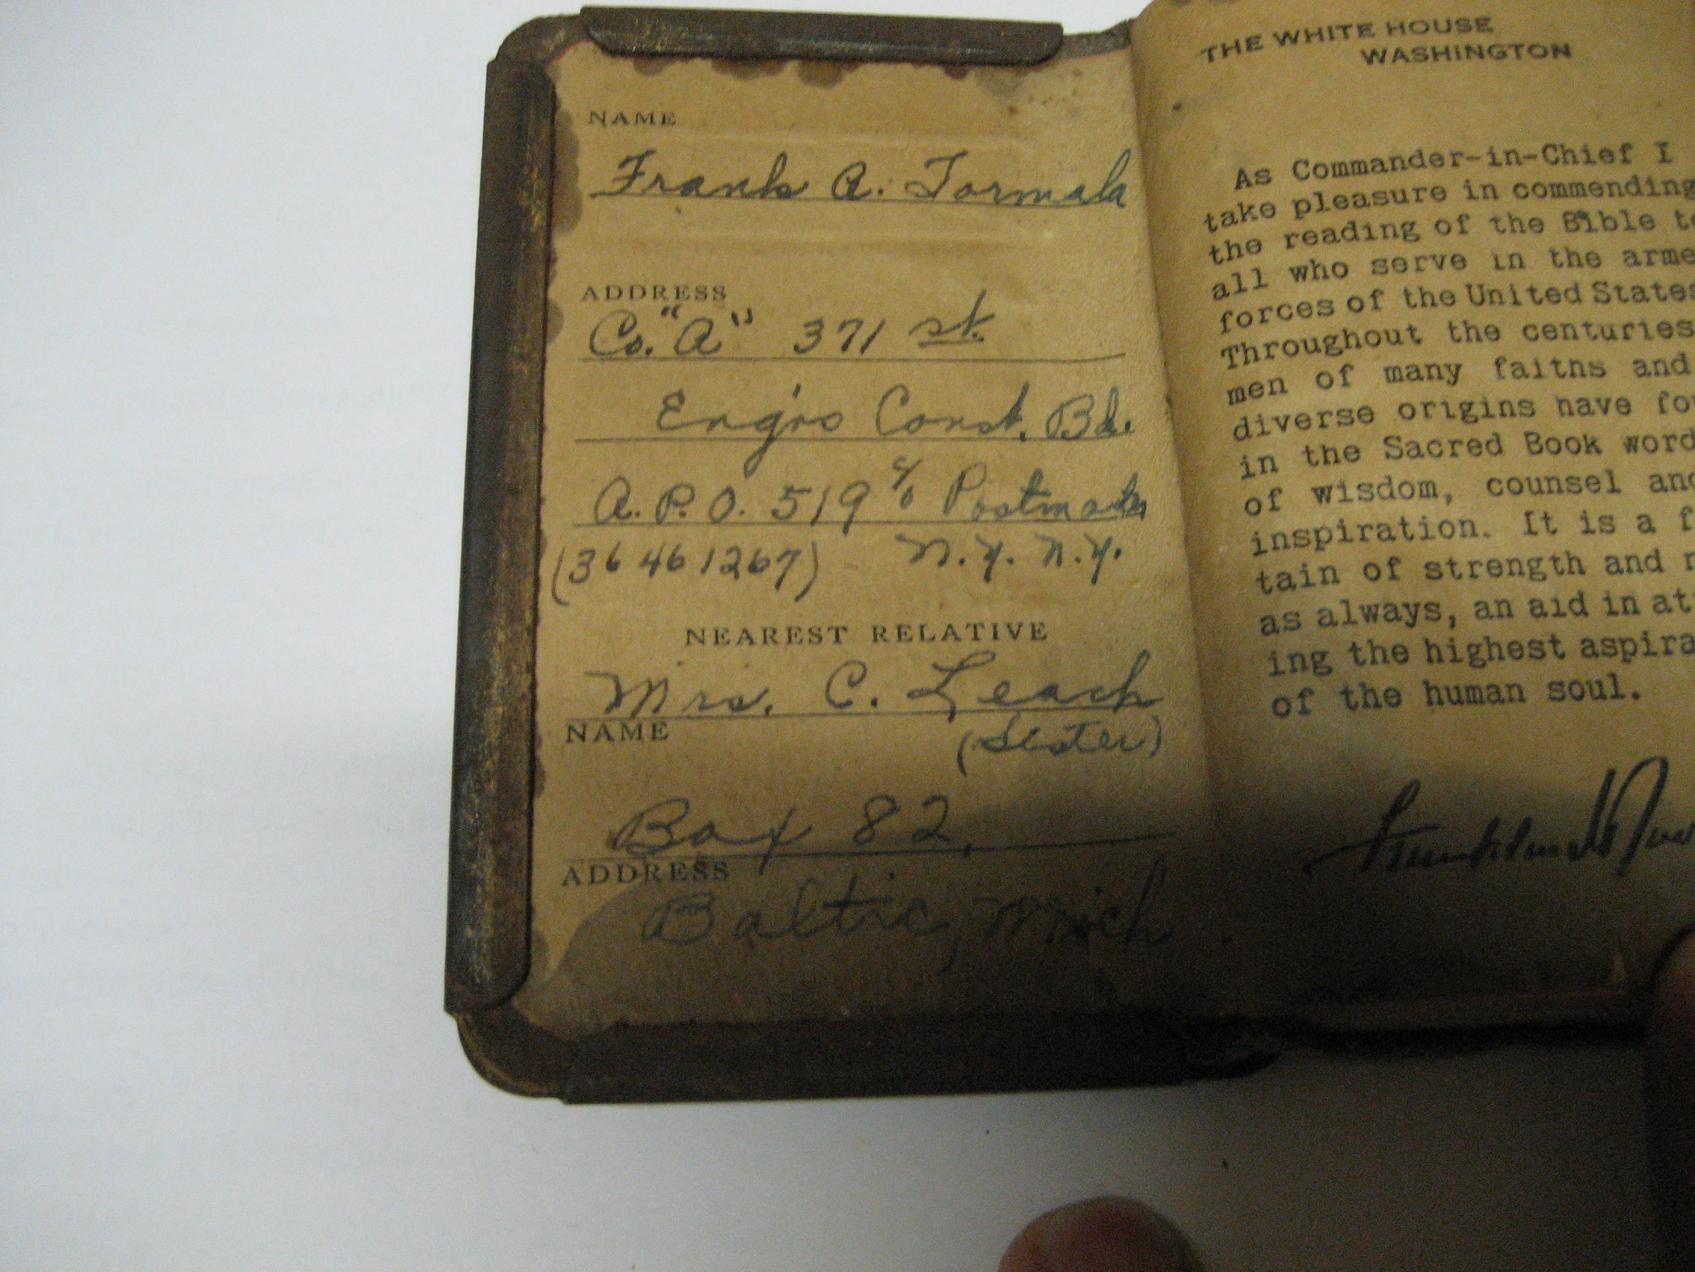 NAME
Frank A. Tormala
ADDRESS
Co. "A" 371 st.
Eng'rs Const. Bn.
A.P.O. 519 c/o Postmaster
(36461267) N.Y. N.Y.
NEAREST RELATIVE
Mrs. C. Leach
NAME
(Sister)
Box 82,
ADDRESS
Baltic, Mich.
THE WHITE HOUSE
WASHINGTON
As Commander-in-Chief I
take pleasure in commending
the reading of the Bible to
all who serve in the arme
forces of the United States
Throughout the centuries
men of many faiths and
diverse origins have fo
in the Sacred Book word
of wisdom, counsel and
inspiration. It is a f
tain of strength and n
as always, an aid in at
ing the highest aspira
of the human soul.